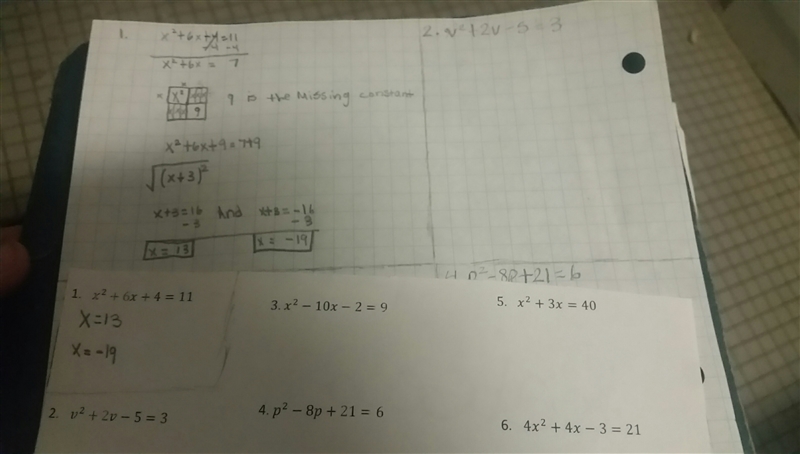 1. x²+6x+4=11
-4 -4
x²+6x = 7
x
x x²
9
9 is the missing constant
x²+6x+9=7+9
√(x+3)²
x+3=16 And x+3=-16
-3 -3
x = 13 x = -19
2. v²+2v-5=3
4. p²-8p+21=6
1. x² + 6x + 4 = 11
X=13
X=-19
3. x² − 10x − 2 = 9
5. x² + 3x = 40
2. v² + 2v − 5 = 3
4. p² − 8p + 21 = 6
6. 4x² + 4x − 3 = 21